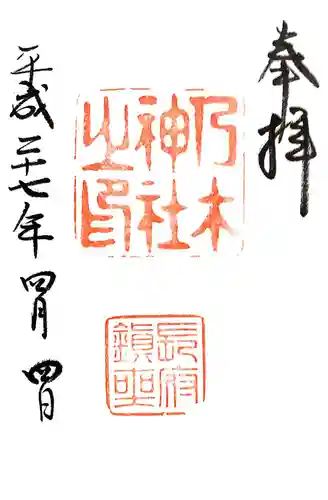 奉拝
乃木
神社
之印
長府
鎮坐
平成二十七年四月四日